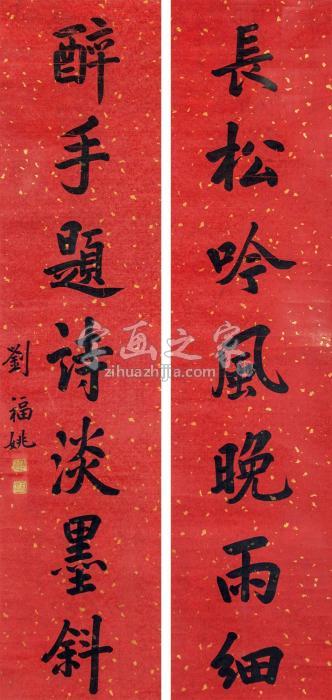 長松吟風晚雨細
醉手題詩淡墨斜
劉福姚
字画之家
zihuazhijia.com